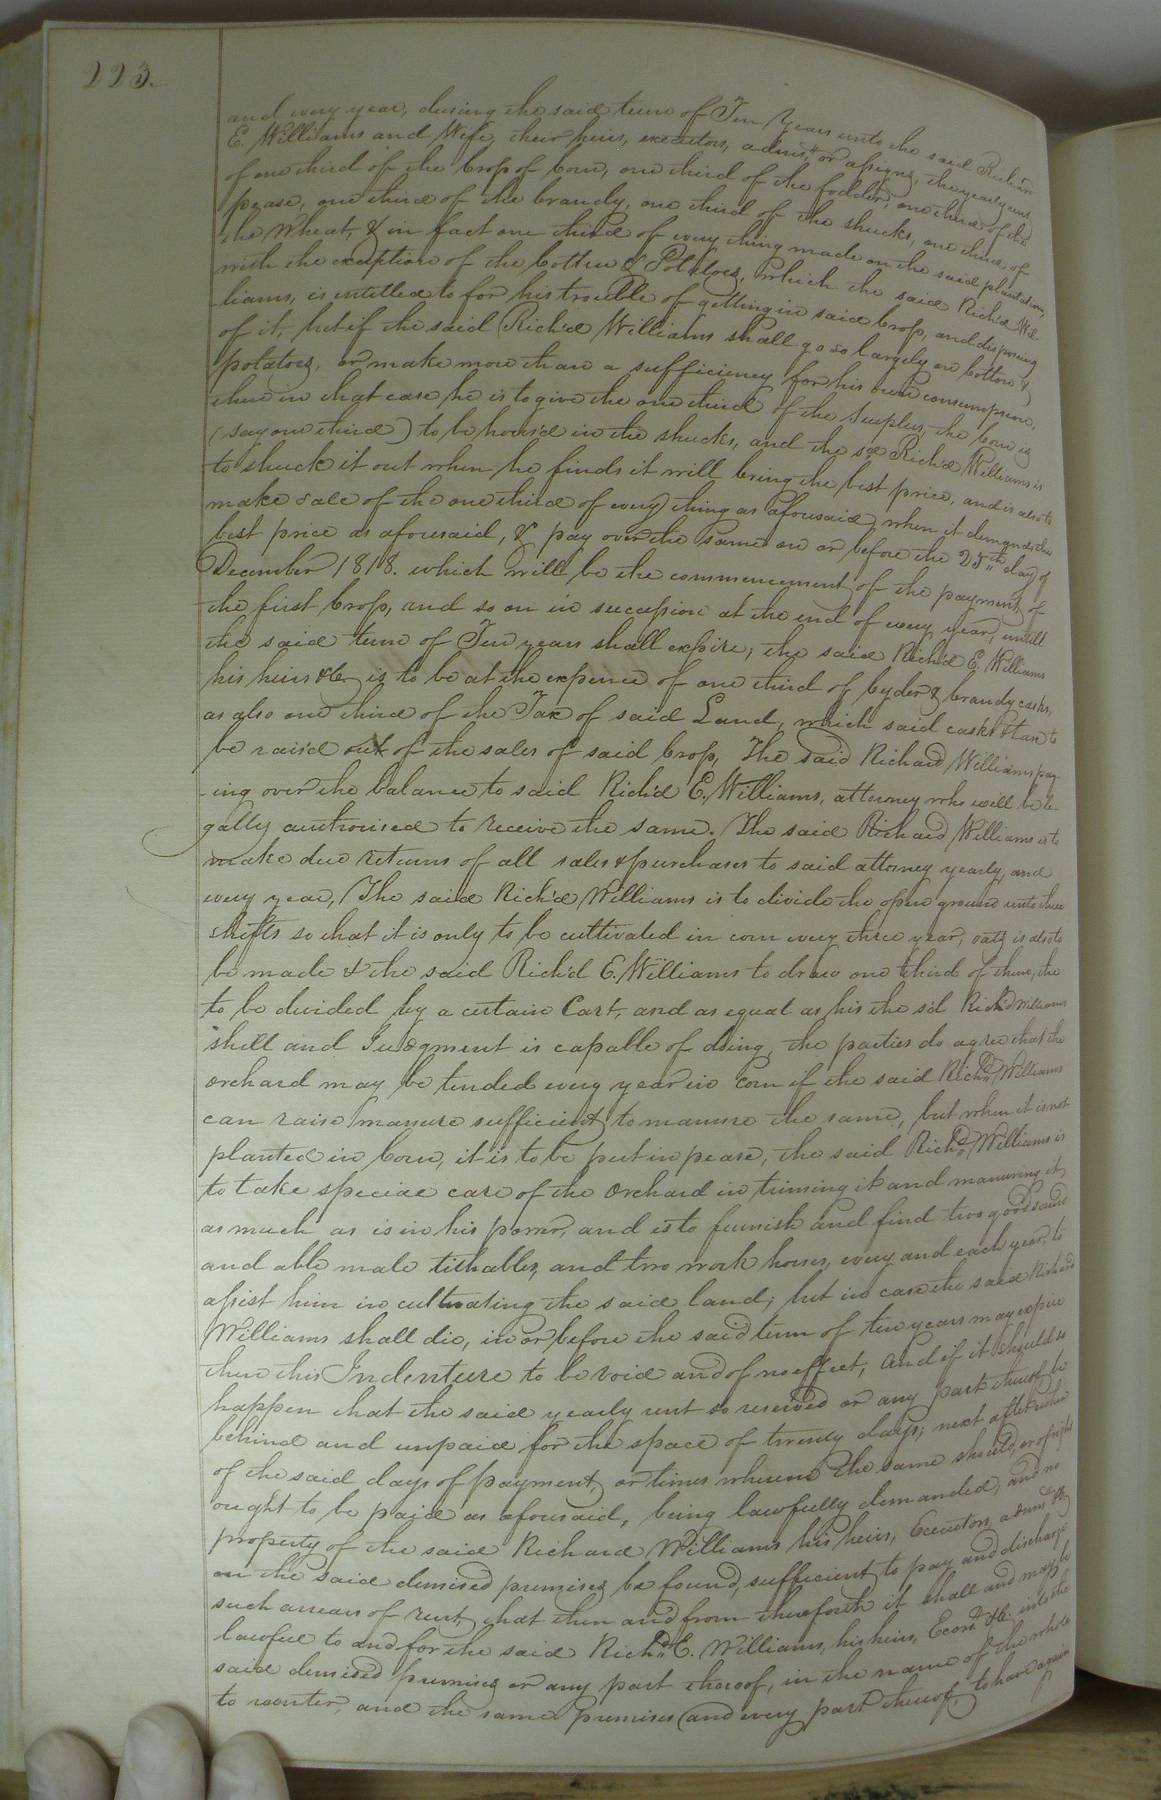 223.
and every year, during the said term of Ten Years unto the said Richard
E. Williams and Wife, their heirs, executors, admrs, or assigns, the yearly rent
of one third of the Crop of Corn, one third of the fodder, one third of the
pease, one third of the brandy, one third of the shucks, one third of
the Wheat, & in fact one third of every thing made on the said plantation,
with the exception of the Cotton & Potatoes, which the said Rich'd Wil-
liams, is intitled to for his trouble of getting in said Crop, and disposing
of it, but if the said Rich'd Williams shall go so largely on Cotton &
potatoes, or make more than a sufficiency for his own consumption,
then in that case he is to give the one third of the Surplus, the Corn is
(say one third) to be hous'd in the shucks, and the sd Rich'd Williams is
to shuck it out when he finds it will bring the best price, and is also to
make sale of the one third of every thing as aforesaid, when it demands the
best price as aforesaid, & pay over the same on or before the 25th day of
December 1818. which will be the commencement of the payment of
the first Crop, and so on in succession at the end of every year, untill
the said term of Ten years shall expire; the said Rich'd E. Williams
his heirs &c is to be at the expence of one third of Cyder & brandy casks,
as also one third of the Tax of said Land, which said casks & tax to
be raisd out of the sales of said Crop, The said Richard Williams pay-
-ing over the balance to said Rich'd E. Williams, attorney who will be le-
gally authorised to receive the same. The said Richard Williams is to
make due returns of all sales & purchases to said attorney yearly, and
every year, The said Rich'd Williams is to divide the open ground into three
shifts so that it is only to be cultivated in corn every three year, oats is also to
be made & the said Rich'd E. Williams to draw one third of them, the
to be divided by a certain Cart, and as equal as his the sd Rich'd Williams
skill and Judgment is capable of doing, the parties do agree that the
orchard may be tended every year in Corn if the said Richd Williams
can raise manure sufficient to manure the same, but when it is not
planted in Corn, it is to be put in pease, the said Richd Williams is
to take special care of the Orchard in triming it and manuring it
as much as is in his power, and is to furnish and find two good sound
and able male tithables, and two work horses, every and each year, to
assist him in cultivating the said land; but in case the said Richard
Williams shall die, in or before the said term of ten years may expire
then this Indenture to be void and of no effect, and if it should so
happen that the said yearly rent so reserved or any part thereof be
behind and unpaid for the space of twenty days; next after either
of the said days of payment, or times whereon the same should, or of right
ought to be paid as aforesaid, being lawfully demanded, and no
property of the said Richard Williams his heirs, Executors, admrs &c
on the said demised premises be found, sufficient to pay and discharge
such arrears of rent, that then and from thenceforth it shall and may be
lawful to and for the said Richd E. Williams, his heirs, Ecors &c. into the
said demised premises or any part thereof, in the name of the whole
to reenter, and the same premises (and every part thereof, to have again